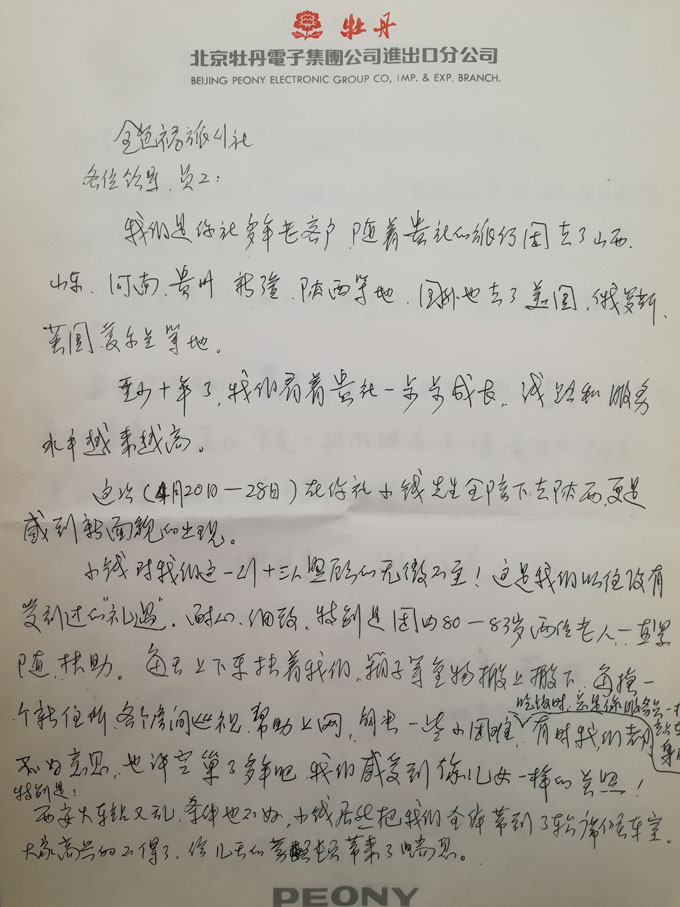 牡丹
北京牡丹電子集團公司進出口分公司
BEIJING PEONY ELECTRONIC GROUP CO, IMP. & EXP. BRANCH.
旅行社
各位领导、员工:
我们是你社多年老客户,随着贵社的旅行团去了山西、
山东、河南、贵州、新疆、陕西等地、国外也去了美国、俄罗斯、
英国、爱尔兰等地。
至少十年了,我们看着贵社一步步成长,线路和服务
水平越来越高。
这次(4月20日—28日)在你社小钱先生全陪下去陕西,更是
感到新面貌的出现。
小钱对我们这一行十三人照顾的无微不至!这是我们以往没有
受到过的"礼遇"。耐心、细致,特别是团内80—83岁两位老人,一直紧
随、扶助。每天上下车扶着我们,箱子等重物搬上搬下,每换一
个新住所,各个房间巡视,帮助上网,解决一些小困难,有时我们都
吃饭时,总是像服务员一
站在
不好意思,也许空巢了多年吧,我们感受到像儿女一样的关照!
特别是:
西安火车站又乱,条件也不好,小钱居然把我们全体带到了软席候车室。
大家高兴的不得了,给几天的带来了喘息。
PEONY